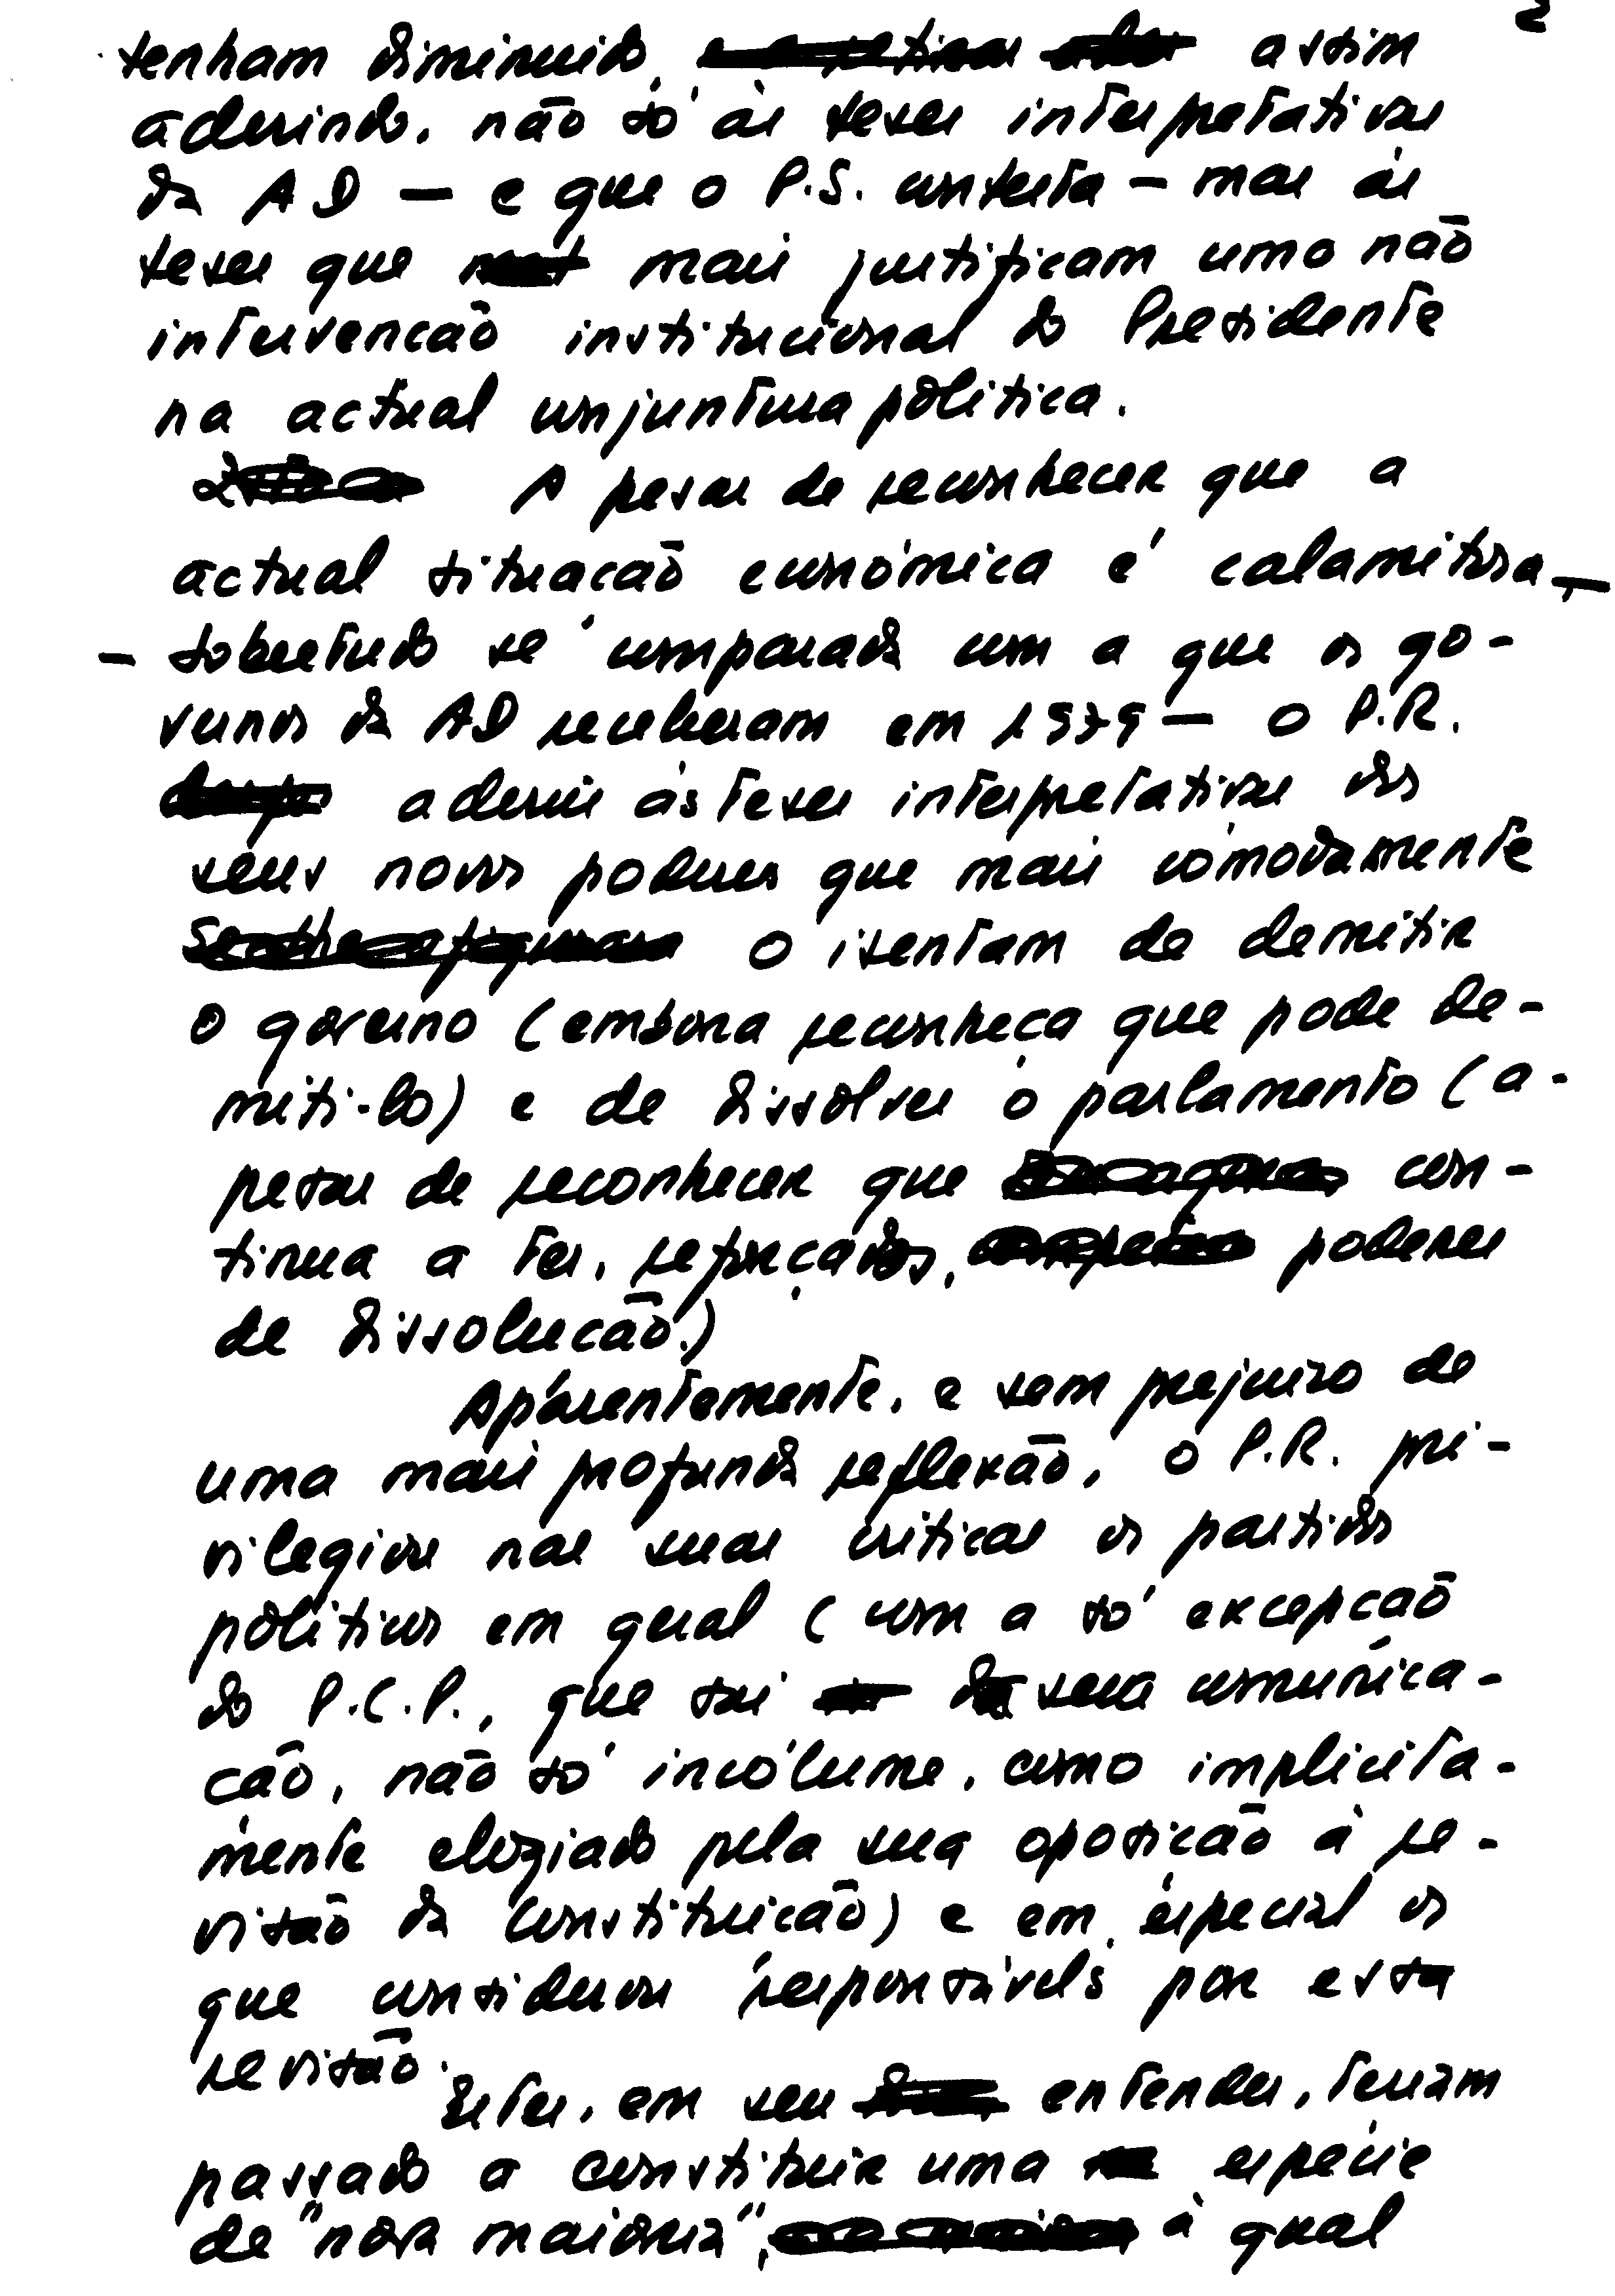 2
tenham diminuido, assim
aderindo, não só às teses interpretativas
da AD — e que o P.S. contesta — mas às
teses que mais justificam uma não
intervencão institucional do Presidente
na actual conjuntura politica.
Apesar de reconhecer que a
actual situacão económica é calamitosa, —
— sobretudo se comparada com a que os go-
vernos da AD receberam em 1979 — o P.R.
aderiu ás teses interpretativas dos
seus novos poderes que mais cómodamente
o isentam de demitir
o governo (embora reconheça que pode de-
miti-lo) e de dissolver o parlamento (a-
pesar de reconhecer que con-
tinua a ter, reforçados, poderes
de dissolucão.)
Aparentemente, e sem prejuizo de
uma mais profunda reflexão, o P.R. pri-
vilegiou nas suas criticas os partidos
politicos em geral (com a só excepcão
do P.C.P., que sai da sua comunica-
cão, não só incólume, como implicita-
mente elogiado pela sua oposicão à re-
visão da Constituicão) e em especial os
que considerou responsáveis por esta
revisão.
Estes, em seu entender, teriam
passado a constituir uma espécie
de "nova maioria", à qual